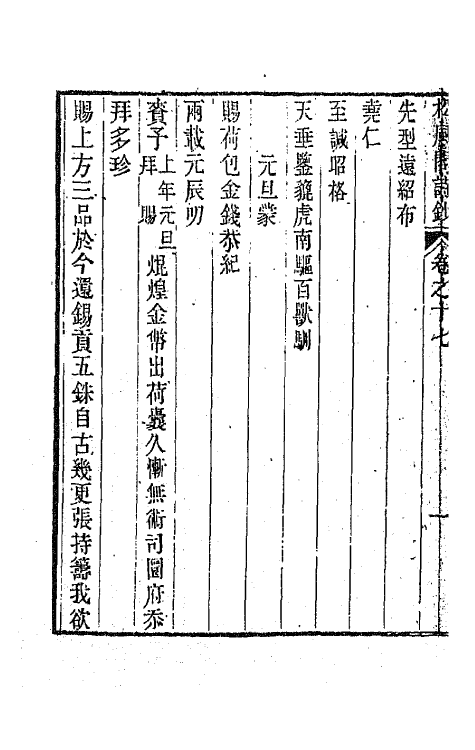 松風閣詩鈔 卷之十七 一
先型遠紹布
堯仁
至誠昭格
天垂鑒貔虎南驅百獸馴
元旦蒙
賜荷包金錢恭紀
兩載元辰叨
賚予上年元旦拜賜焜煌金幣出荷囊久慚無術司圜府忝
拜多珍
賜上方三品於今還錫貢五銖自古幾更張持籌我欲